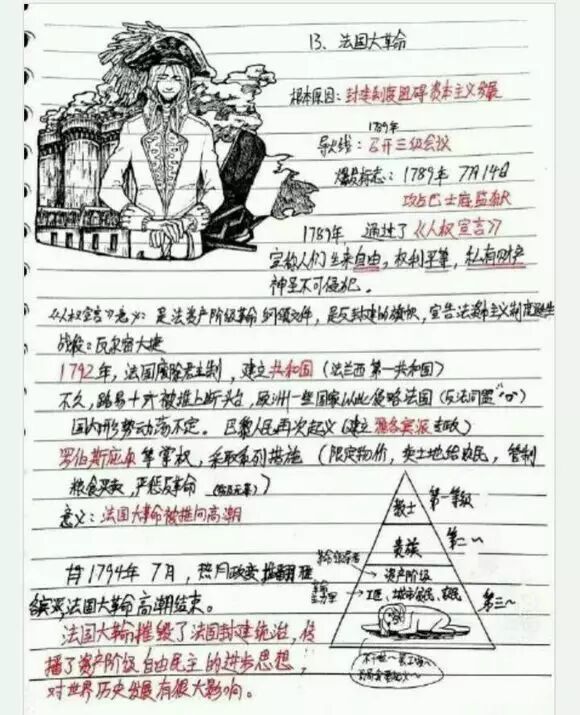 13、法国大革命
根本原因：封建制度阻碍资本主义发展
1789年
导火线：召开三级会议
爆发标志：1789年 7月14日
攻占巴士底监狱
1789年，通过了《人权宣言》
宣称人们生来自由，权利平等，私有财产
神圣不可侵犯。
《人权宣言》意义：是法资产阶级革命纲领文件，是反封建的旗帜，宣告法资本主义制度诞生
战役：瓦尔密大捷
1792年，法国废除君主制，建立共和国（法兰西第一共和国）
不久，路易十六被推上断头台，欧洲一些国家以此侵略法国（反法同盟
国内形势动荡不定。巴黎人民再次起义（建立雅各宾派专政）
罗伯斯庇尔等掌权，采取系列措施（限定物价，卖土地给农民，管制
粮食买卖，严惩反革命
意义：法国大革命被推向高潮
教士 第一等级
贵族 第二～
革命领导者 → 资产阶级
→ 工匠、城市贫民、农民 第三～
有1794年7月，热月政变推翻雅
各宾派，法国大革命高潮结束。
法国大革命摧毁了法国封建统治，传
播了资产阶级自由民主的进步思想，
对世界历史发展有很大影响。